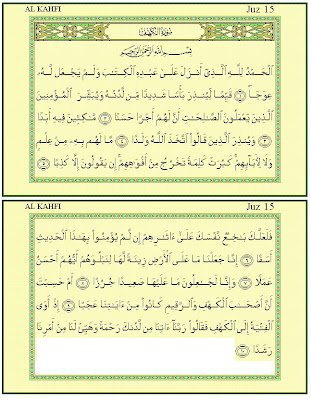 AL KAHFI
Juz 15
سورة الكهف
بِسْمِ اللَّهِ الرَّحْمَٰنِ الرَّحِيمِ
الْحَمْدُ لِلَّهِ الَّذِي أَنزَلَ عَلَىٰ عَبْدِهِ الْكِتَابَ وَلَمْ يَجْعَل لَّهُ
عِوَجًا ۜ ﴿١﴾ قَيِّمًا لِّيُنذِرَ بَأْسًا شَدِيدًا مِّن لَّدُنْهُ وَيُبَشِّرَ الْمُؤْمِنِينَ
الَّذِينَ يَعْمَلُونَ الصَّالِحَاتِ أَنَّ لَهُمْ أَجْرًا حَسَنًا ﴿٢﴾ مَّاكِثِينَ فِيهِ أَبَدًا
﴿٣﴾ وَيُنذِرَ الَّذِينَ قَالُوا اتَّخَذَ اللَّهُ وَلَدًا ﴿٤﴾ مَّا لَهُم بِهِ مِنْ عِلْمٍ
وَلَا لِآبَائِهِمْ ۚ كَبُرَتْ كَلِمَةً تَخْرُجُ مِنْ أَفْوَاهِهِمْ ۚ إِن يَقُولُونَ إِلَّا كَذِبًا ﴿٥﴾
AL KAHFI
Juz 15
فَلَعَلَّكَ بَاخِعٌ نَّفْسَكَ عَلَىٰ آثَارِهِمْ إِن لَّمْ يُؤْمِنُوا بِهَٰذَا الْحَدِيثِ
أَسَفًا ﴿٦﴾ إِنَّا جَعَلْنَا مَا عَلَى الْأَرْضِ زِينَةً لَّهَا لِنَبْلُوَهُمْ أَيُّهُمْ أَحْسَنُ
عَمَلًا ﴿٧﴾ وَإِنَّا لَجَاعِلُونَ مَا عَلَيْهَا صَعِيدًا جُرُزًا ﴿٨﴾ أَمْ حَسِبْتَ
أَنَّ أَصْحَابَ الْكَهْفِ وَالرَّقِيمِ كَانُوا مِنْ آيَاتِنَا عَجَبًا ﴿٩﴾ إِذْ أَوَى
الْفِتْيَةُ إِلَى الْكَهْفِ فَقَالُوا رَبَّنَا آتِنَا مِن لَّدُنكَ رَحْمَةً وَهَيِّئْ لَنَا مِنْ أَمْرِنَا
رَشَدًا ﴿١٠﴾